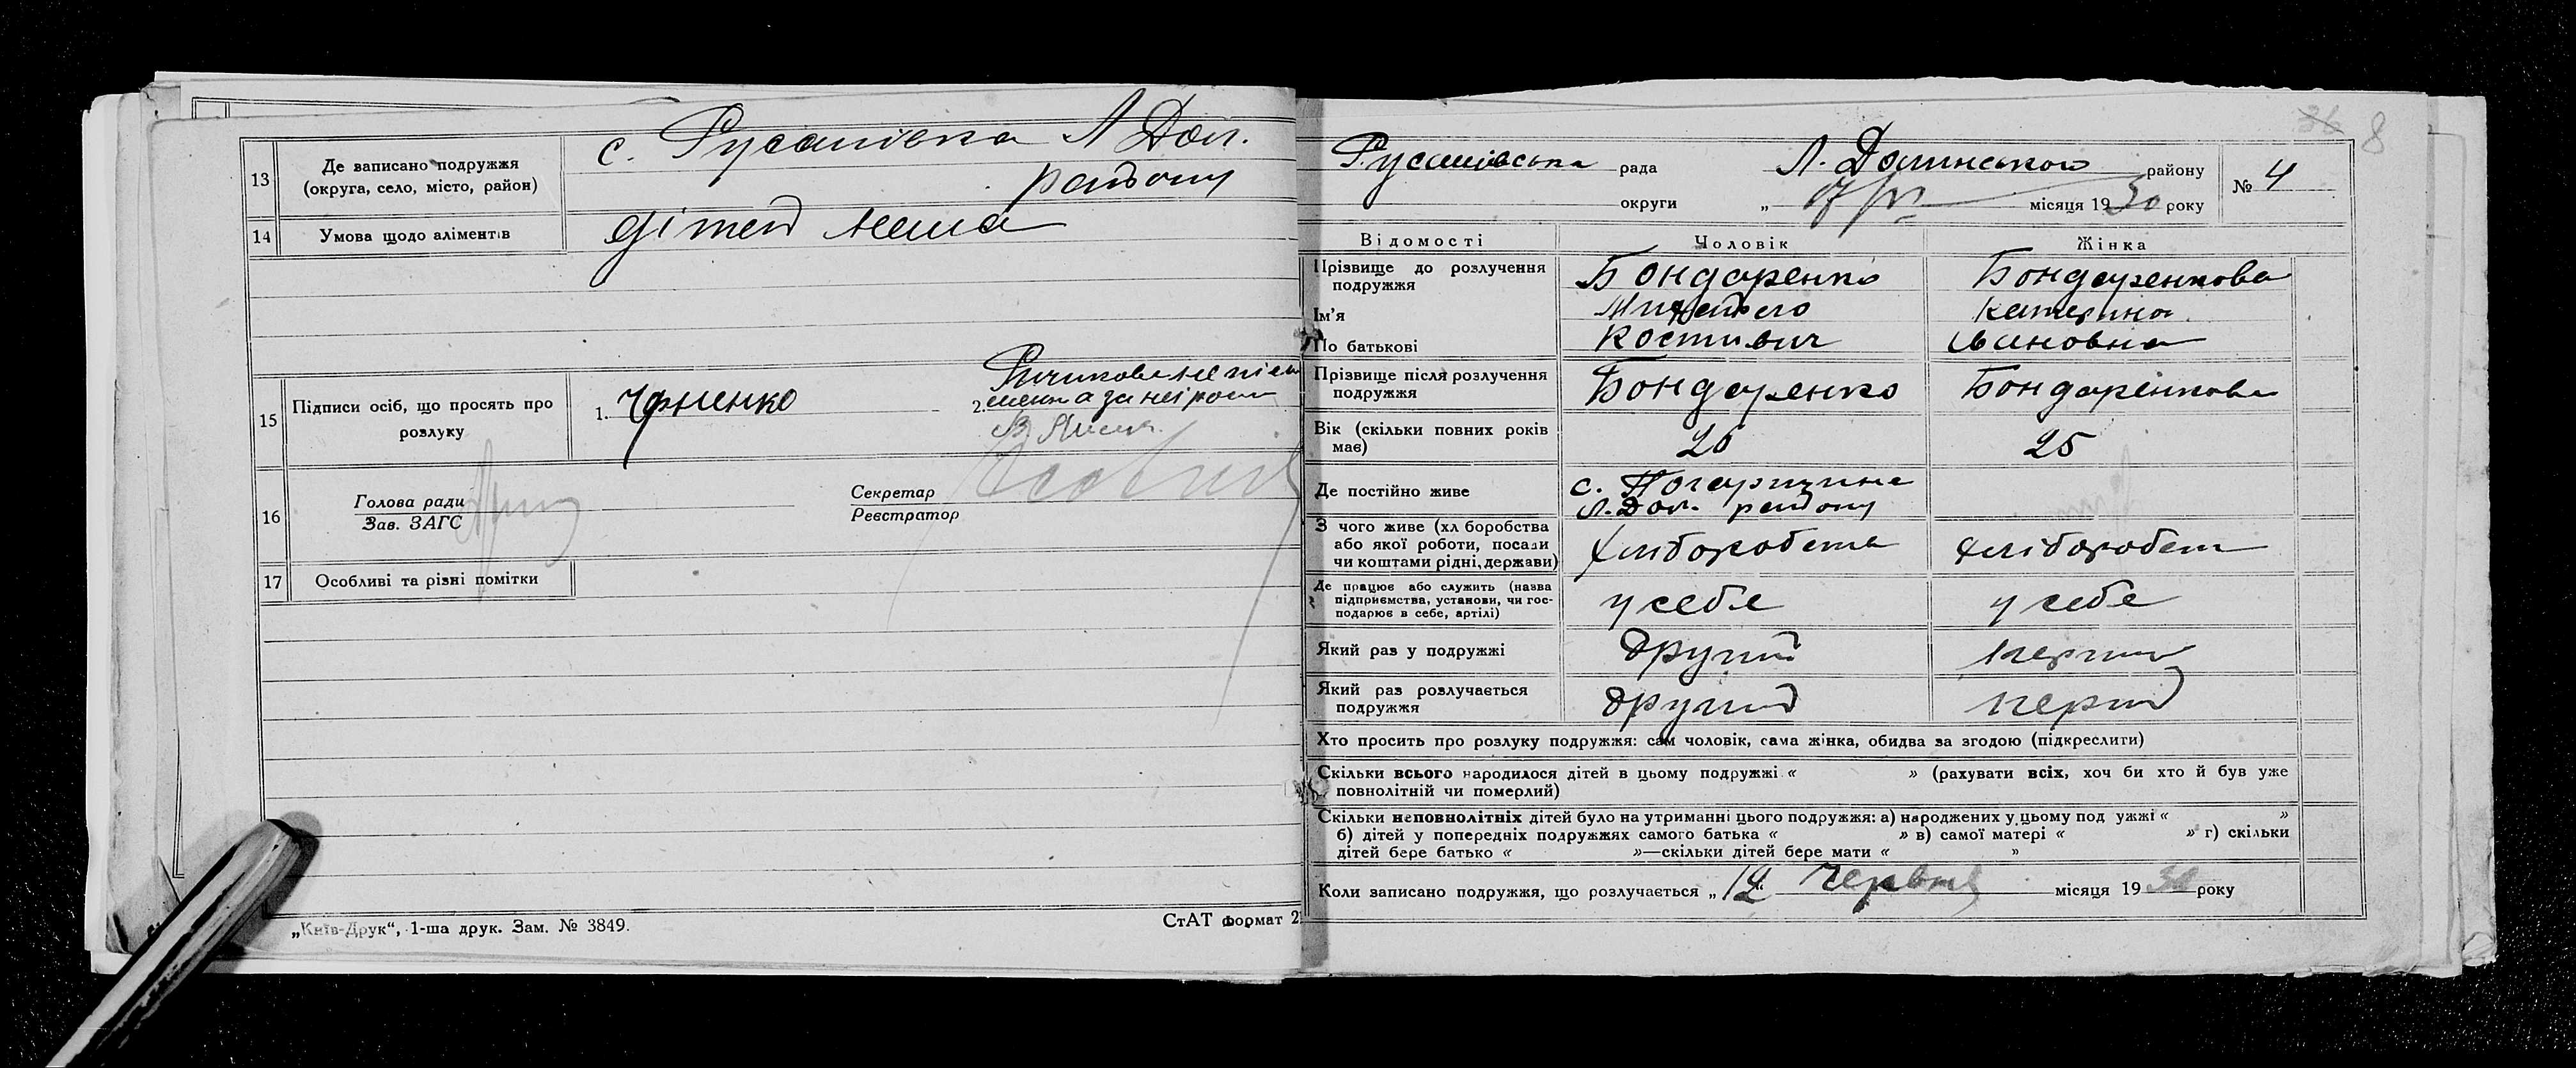 13
Де записано подружжя
(округа, село, місто, район)
с. Русанівка Л Дол.
району
14
Умова щодо аліментів
дітей нема
15
Підписи осіб, що просять про
розлуку
1.
2.
за неї
16
Голова ради
Зав. ЗАГС
Секретар
Реєстратор
17
Особливі та різні помітки
„Київ-Друк“, 1-ша друк. Зам. № 3849.
СтАТ формат 2
36 8
Русанівська рада Л. Долинського району
округи „ місяця 1930 року
№ 4
Відомості
Чоловік
Жінка
Прізвище до розлучення
подружжя
Бондаренко
Бондаренкова
Ім'я
Катерина
По батькові
Костивич
Ивановна
Прізвище після розлучення
подружжя
Бондаренко
Бондаренкова
Вік (скільки повних років
має)
26
25
Де постійно живе
с. Погарщина
Л. Дол. району
З чого живе (хліборобства
або якої роботи, посади
чи коштами рідні, держави)
хліборобства
хліборобст
Де працює або служить (назва
підприємства, установи, чи гос-
подарює в себе, артілі)
у себе
у себе
Який раз у подружжі
другий
перший
Який раз розлучається
подружжя
другий
перший
Хто просить про розлуку подружжя: сам чоловік, сама жінка, обидва за згодою (підкреслити)
Скільки всього народилося дітей в цьому подружжі « » (рахувати всіх, хоч би хто й був уже
повнолітній чи померлий)
Скільки неповнолітніх дітей було на утриманні цього подружжя: а) народжених у цьому под ужжі « »
б) дітей у попередніх подружжях самого батька « » в) самої матері « » г) скільки
дітей бере батько « »—скільки дітей бере мати « »
Коли записано подружжя, що розлучається „ Червня місяця 1930 року